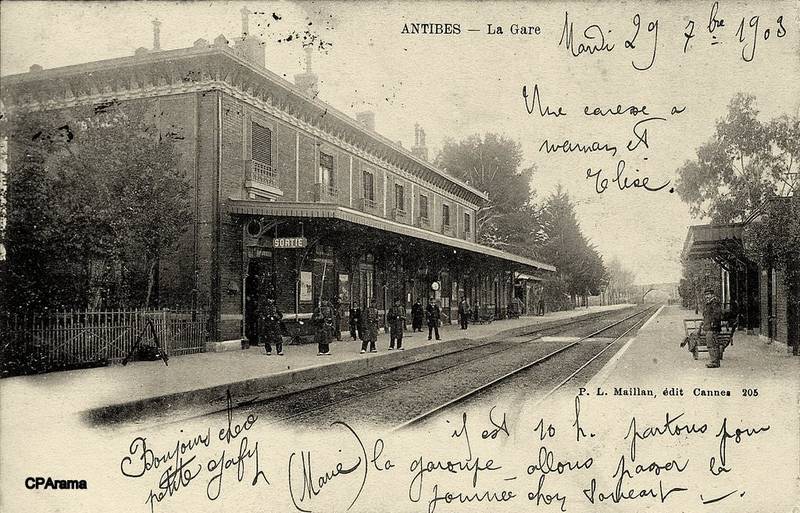 ANTIBES — La Gare
Mardi 29 7bre 1903
Une caresse a
maman et
Elise
SORTIE
P. L. Maillan, édit Cannes 205
Bonjours chee
petite gafy
(Marie)
il est 10 h. partons pour
la garoupe allons passer la
journée chez
CPArama